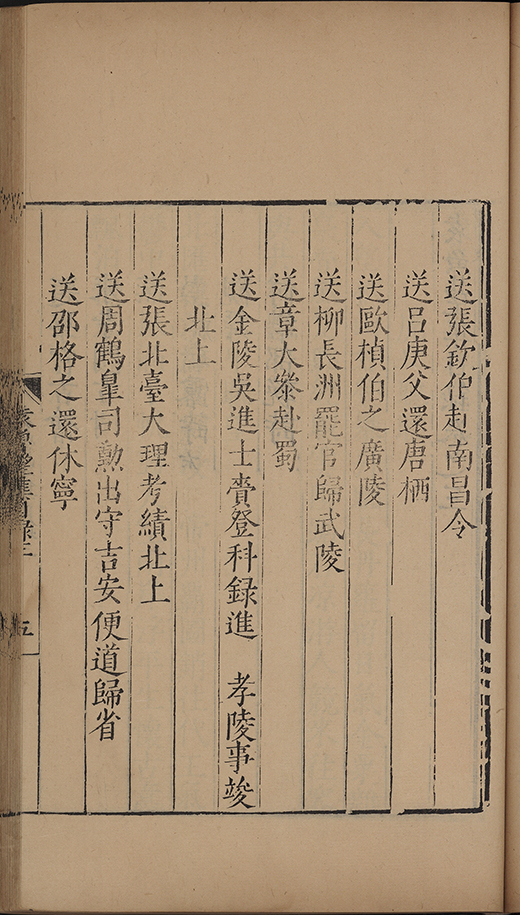 送張欽伯赴南昌令
送呂庚父還唐栖
送歐楨伯之廣陵
送柳長洲罷官歸武陵
送章大參赴蜀
送金陵吳進士賫登科録進 孝陵事竣
北上
送張北臺大理考績北上
送周鶴皐司勲出守吉安便道歸省
送邵格之還休寧
五